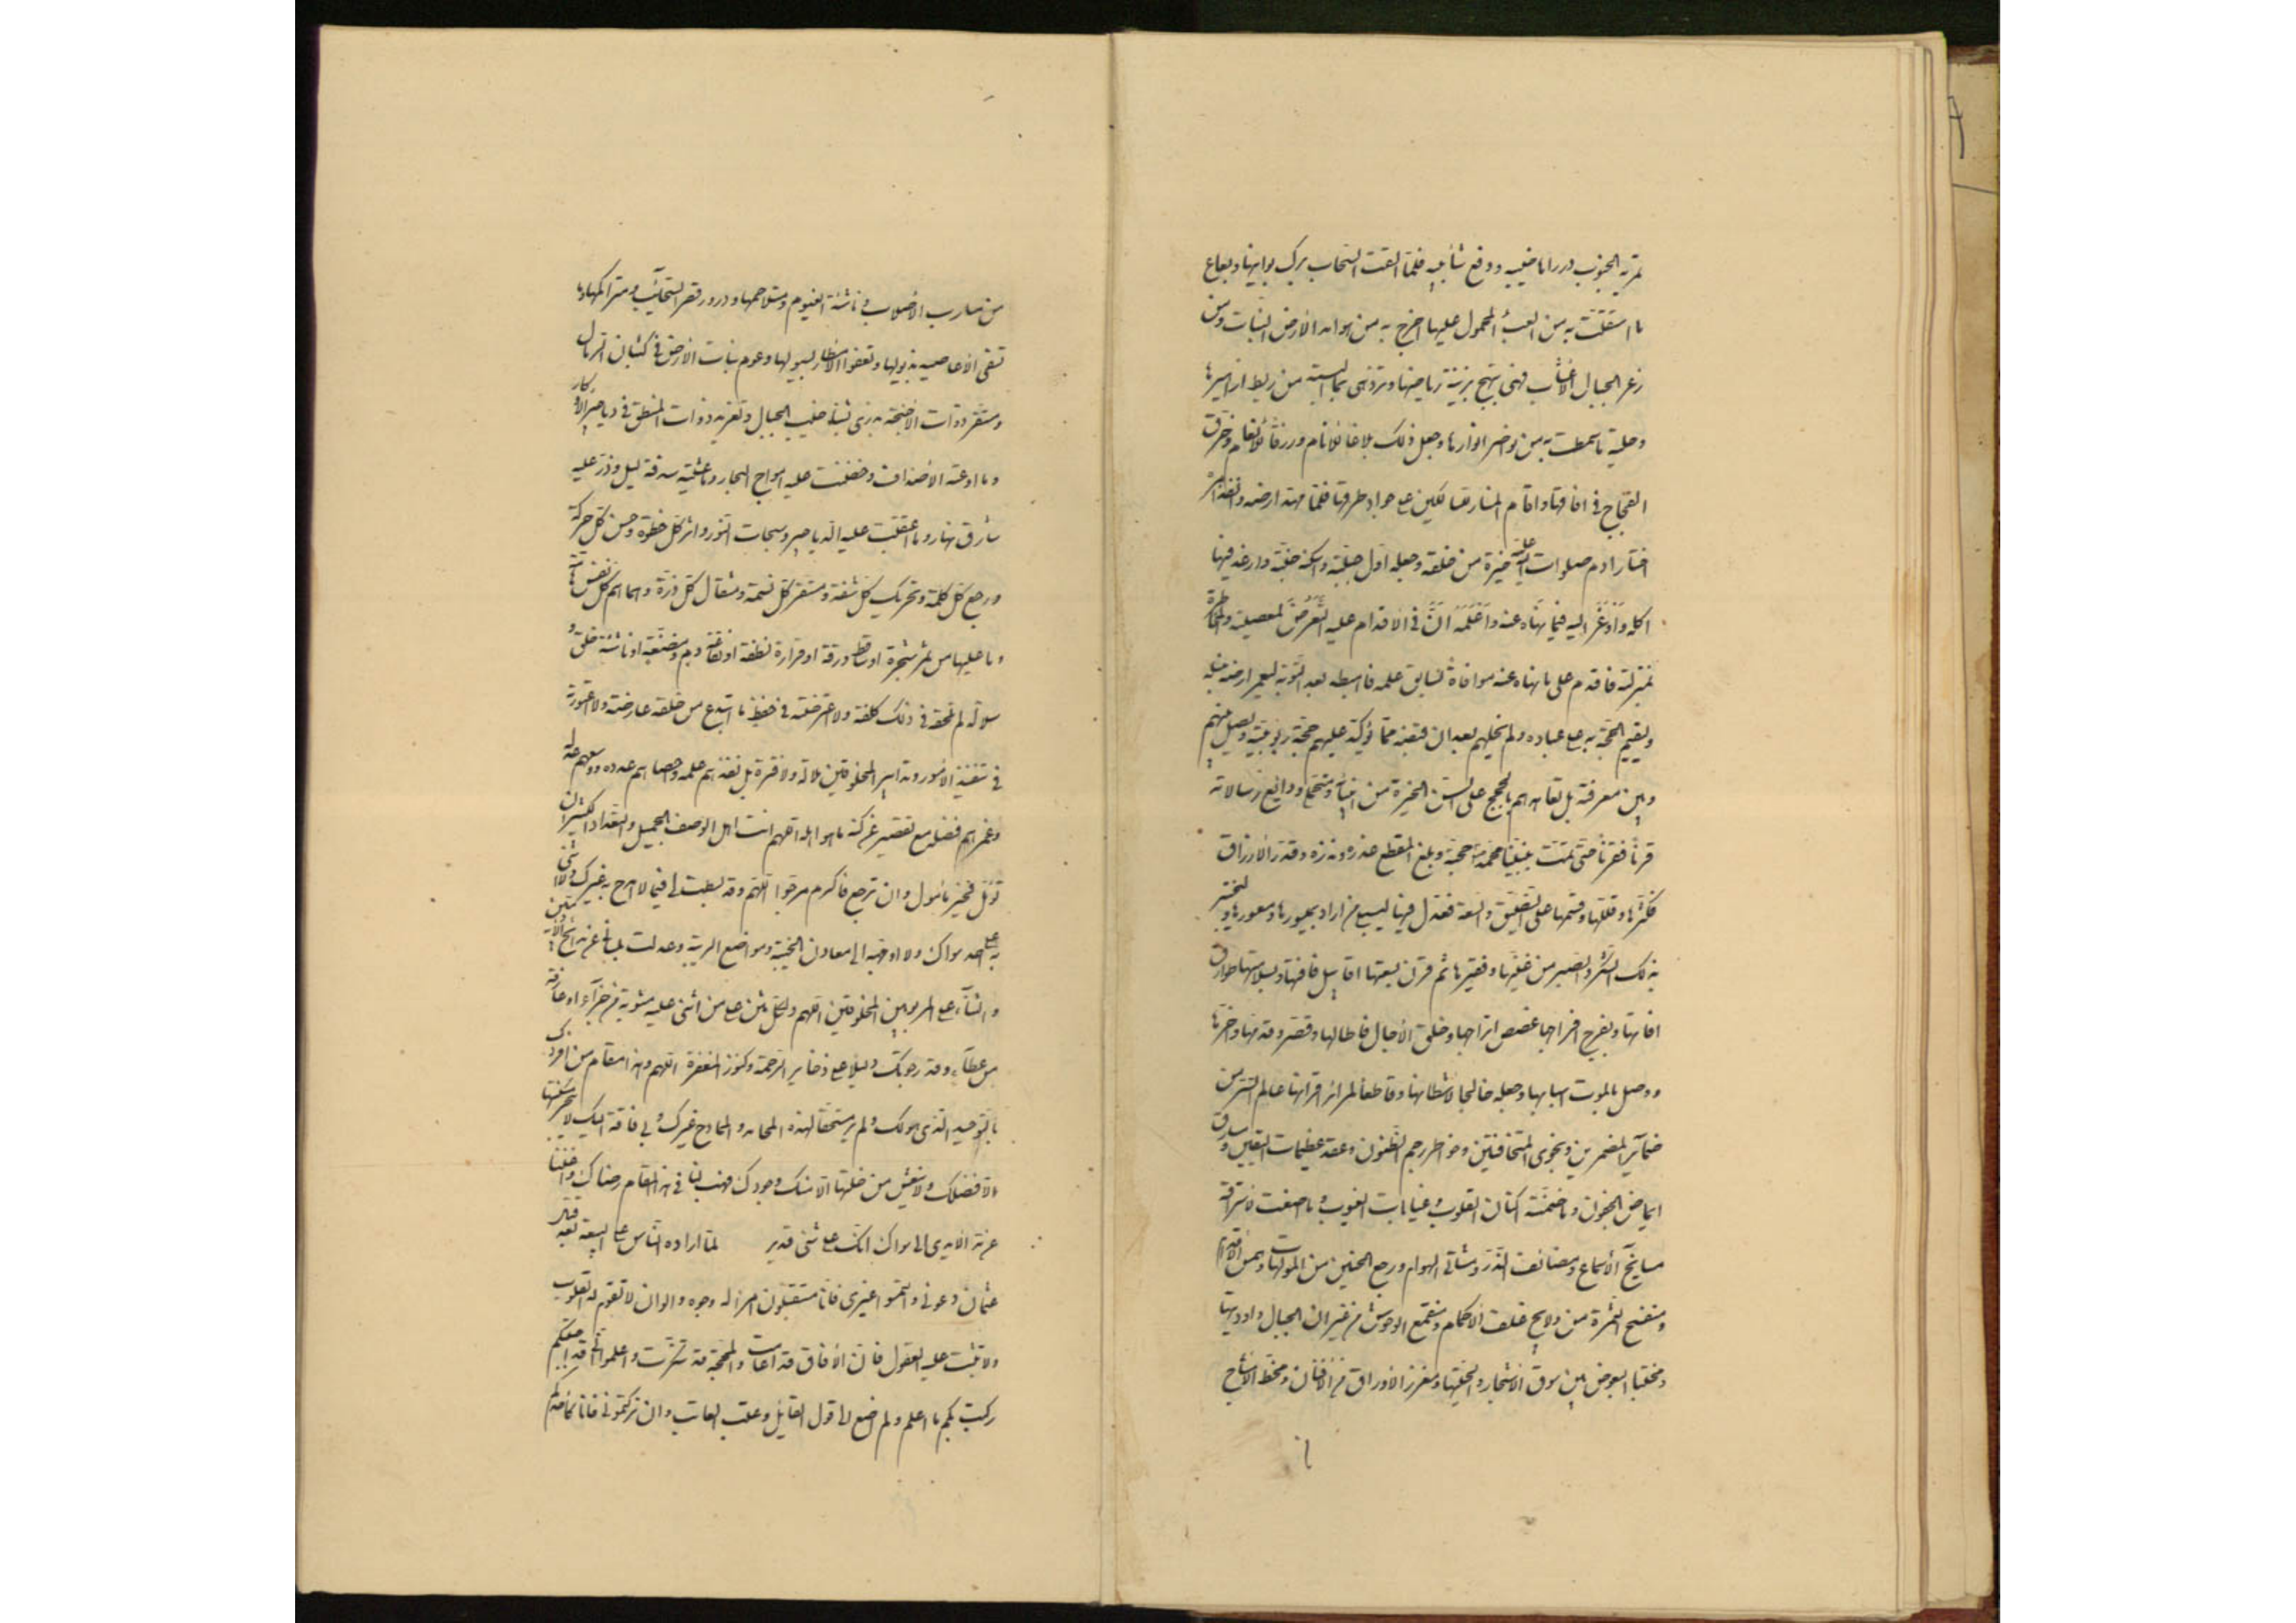 تمريه الجنوب درر اهاضيبه ودفع شآبيبه فلما القت السحاب برك بوانيها وبعاع
ما استقلت به من العبء المحمول عليها اخرج به من هوامد الارض النبات ومن
زعر الجبال الاعشاب فهى تبهج بزينة رياضها وتزدهى بما البسته من ريط ازاهيرها
وحلية ما سمطت به من نواضر انوارها وجعل ذلك بلاغا للانام ورزقا للانعام وخرق
الفجاج فى افاقها واقام المنار للسالكين على جواد طرقها فلما مهد ارضه وانفذ امره
اختار ادم صلوات الله عليه خيرة من خلقه وجعله اول جبلته واسكنه جنته وارغد فيها
اكله وَاَوْعَزَ اليه فيما نهاه عنه وَاَعْلَمَهُ اَنَّ فى الاقدام عليه التَّعَرُّضَ لمعصيته والمخاطرة
بمنزلته فاقدم على ما نهاه عنه موافاةً لسابق علمه فاهبطه بعد التوبة ليعمر ارضه بنسله
وليقيم الحجة به على عباده ولم يخلهم بعد ان قبضه مما يؤكد عليهم حجة ربوبيته ويصل بينهم
وبين معرفته بل تعاهدهم بالحجج على السن الخيرة من انبيائه ومتحملى ودائع رسالاته
قرنا فقرنا حتى تمت بنبينا محمد حجته وبلغ المقطع عذره ونذره وقدر الارزاق
فكثرها وقللها وقسمها على الضيق والسعة فعدل فيها ليبتلى من اراد بميسورها ومعسورها وليختبر
بذلك الشكر والصبر من غنيها وفقيرها ثم قرن بسعتها عقابيل فاقتها وبسلامتها طوارق
افاتها وبفرج افراحها غصص اتراحها وخلق الاجال فاطالها وقصرها وقدمها واخرها
ووصل بالموت اسبابها وجعله خالجا لاشطانها وقاطعا لمرائر اقرانها عالم السر من
ضمائر المضمرين ونجوى المتخافتين وخواطر رجم الظنون وعقد عزيمات اليقين ومسارق
ايماض الجفون وما ضمنته اكنان القلوب وغيابات الغيوب وما اصغت لاستراقه
مصايخ الاسماع ومصائف الذر ومشاتى الهوام ورجع الحنين من المولهات وهمس الاقدام
ومنفسح الثمرة من ولايج غلف الاكمام ومنقمع الوحوش من غيران الجبال واوديتها
ومختبا البعوض بين سوق الاشجار والحيتها ومغرز الاوراق من الافنان ومحط الامشاج
من مسارب الاصلاب وناشئة الغيوم ومتلاحمها ودرور قطر السحائب ومتراكمها وما
تسفى الاعاصير بذيولها وتعفوا الامطار بسيولها وعوم بنات الارض فى كثبان الرمال
ومستقر ذوات الاجنحة بذرى شناخيب الجبال وتغريد ذوات المنطق فى دياجير الاوكار
وما اوعته الاصداف وحضنت عليه امواج البحار وما غشيته سدفة ليل وذر عليه
شارق نهار وما اعتقبت عليه الدياجير وسبحات النور واثر كل خطوة وحس كل حركة
ورجع كل كلمة وتحريك كل شفة ومستقر كل نسمة ومثقال كل ذرة وهماهم كل نفس هامة
وما عليها من ثمر شجرة او ساقط ورقة او قرارة نطفة او نقاعة دم ومضغة او ناشئة خلق و
سلالة لم تلحقه فى ذلك كلفة ولا اعترضته فى حفظ ما ابتدع من خلقه عارضة ولا اعتورته
فى تنفيذ الامور وتدابير المخلوقين ملالة ولا فترة بل نفذهم علمه واحصاهم عدده ووسعهم عدله
وغمرهم فضله مع تقصيرهم عن كنه ما هو اهله اللهم انت اهل الوصف الجميل والتعداد الكثير ان
تؤمل فخير مامول وان ترجع فاكرم مرجو اللهم وقد بسطت لى فيما لا امدح به غيرك ولا اثنى
به على احد سواك ولا اوجهه الى معادن الخيبة ومواضع الريبة وعدلت بلسانى عن مدائح الآدميين
والثناء على المربوبين المخلوقين اللهم ولكل مثن على من اثنى عليه مثوبة من جزآء او عارفة
من عطآء وقد رجوتك دليلا على ذخاير الرحمة وكنوز المغفرة اللهم وهذا مقام من افردك
بالتوحيد الذى هو لك ولم ير مستحقا لهذه المحامد والممادح غيرك ولى فاقة اليك لا يجبر مسكنتها
الا فضلك ولا ينعش من خلتها الا منك وجودك فهب لنا فى هذا المقام رضاك واغننا
عن مد الايدى الى سواك انك على كل شئ قدير لما اراده الناس على البيعة بعد قتل
عثمان دعونى والتمسوا غيرى فانا مستقبلون امرا له وجوه والوان لا تقوم له القلوب
ولا تثبت عليه العقول فان الافاق قد اغامت والمحجة قد تنكرت واعلموا انى ان اجبتكم
ركبت بكم ما اعلم ولم اصغ الى قول القايل وعتب العاتب وان تركتمونى فانا كاحدكم